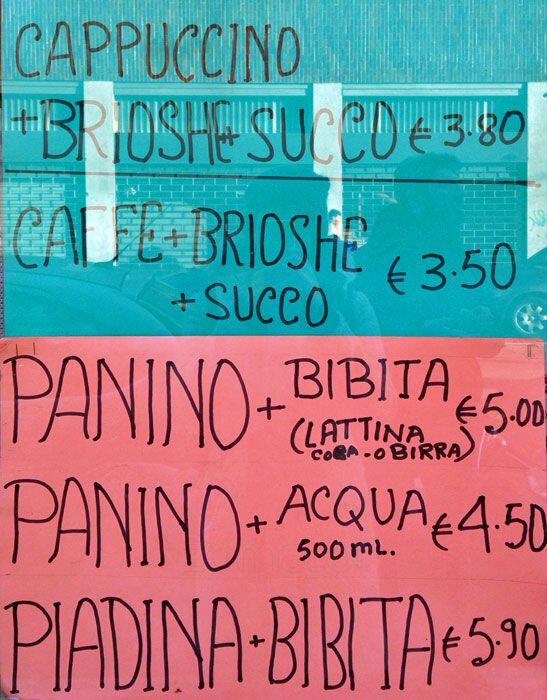 CAPPUCCINO
+BRIOSHE+SUCCO € 3.80
CAFFE+BRIOSHE
+SUCCO € 3.50
PANINO + BIBITA € 5.00
(LATTINA
COCA - O BIRRA)
PANINO + ACQUA € 4.50
500 mL.
PIADINA + BIBITA € 5.90